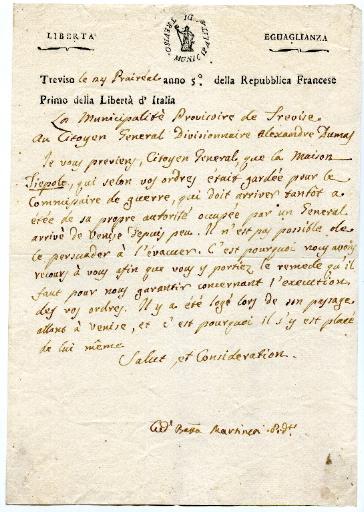 LIBERTÀ
MUNICIPALITÀ DI TREVISO
EGUAGLIANZA
Treviso le 24 Prairéal anno 5.º della Repubblica Francese
Primo della Libertà d' Italia
La Municipalité Provisoire de Trevise
Au Citoyen General Divisionnaire Alexandre Dumas
Je vous previens, Citoyen General, que la Maison
Tiepolo, qui selon vos ordres etait gardée pour le
Commissaire de guerre, qui doit arriver tantôt a
étée de sa propre autorité occupée par un General
arrivé de Venise depuis peu. Il n'est pas possible de
le persuader à l'évacuer. C'est pourquoi nous avons
recours à vous afin que vous y portiez le remede qu'il
faut pour nous garantir concernant l'execution
des vos ordres. Il y a été logé lors de son passage
allant à Venise, et c'est pourquoi il s'y est placé
de lui même
Salut et Consideration.
Martineri Pdt.